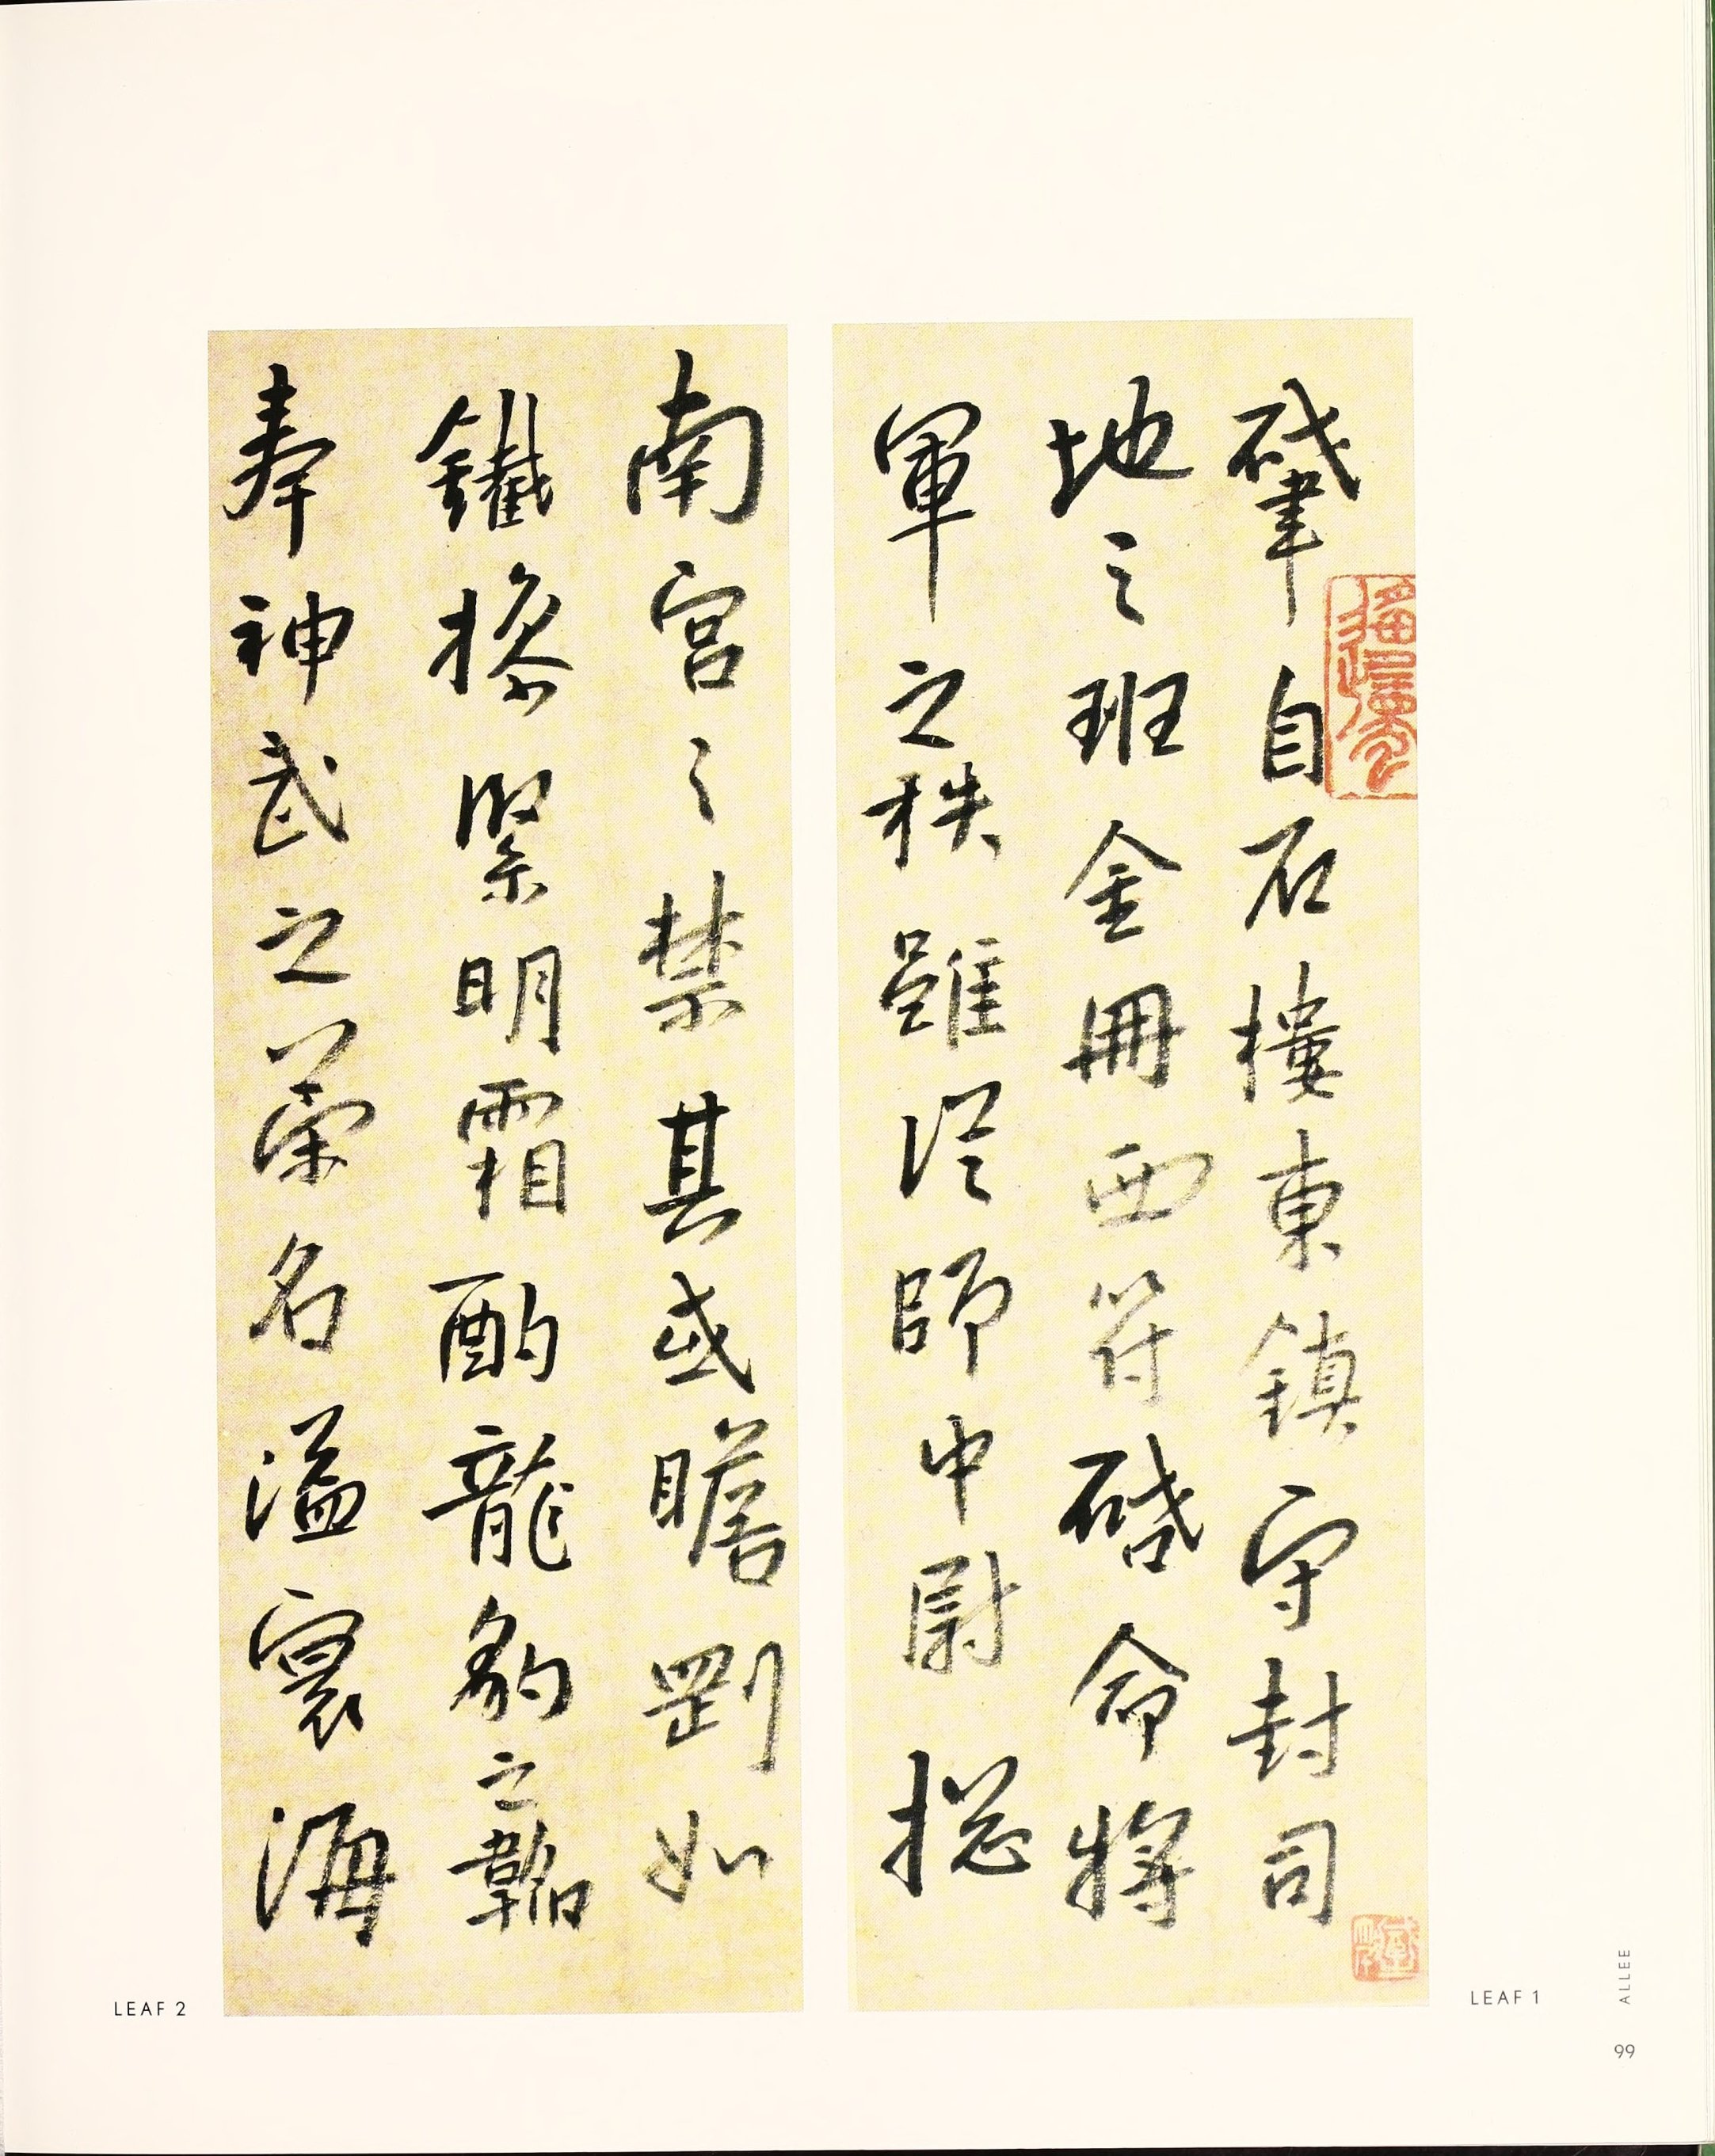 肇自石樓東鎮守封司
地之班金冊西符啓命將
軍之秩雖從師中尉摠
南宮之禁其或瞻剛如
鐵操緊明霜酌龍豹之韜
奉神武之榮名溢寰海
LEAF 2
LEAF 1
ALLEE
99